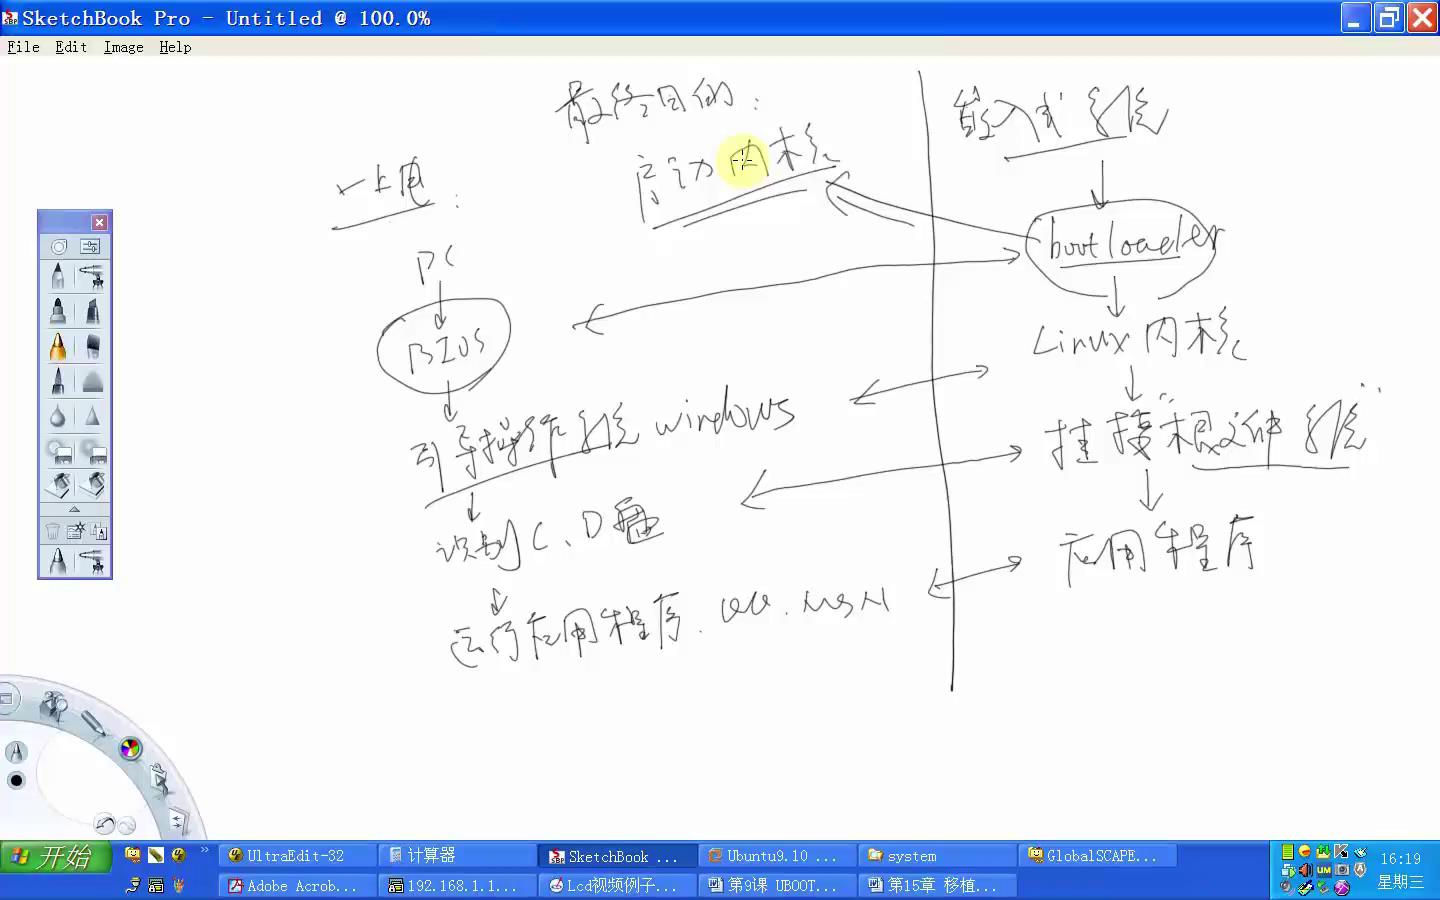 SketchBook Pro - Untitled @ 100.0%
File Edit Image Help
最终目的:
启动内核
一上电:
PC
BIOS
引导操作系统 windows
识别C、D盘
运行应用程序. QQ. MSN
嵌入式系统
bootloader
Linux 内核
挂接“根文件系统”
应用程序
开始
UltraEdit-32
计算器
SketchBook ...
Ubuntu9.10 ...
system
GlobalSCAPE...
Adobe Acrob...
192.168.1.1...
Lcd视频例子...
第9课 UBOOT...
第15章 移植...
16:19
星期三